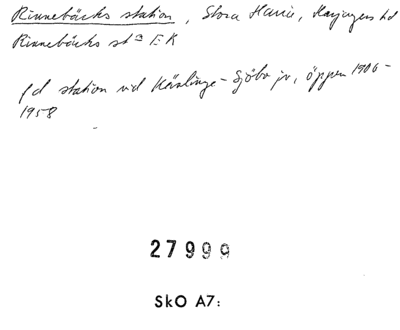 Rinnebäcks station, Stora Harrie, Harjagers hd
Rinnebäcks stn EK
fd station vid Kävlinge - Sjöbo jv, öppen 1906 -
1958
27999
SkO A7: